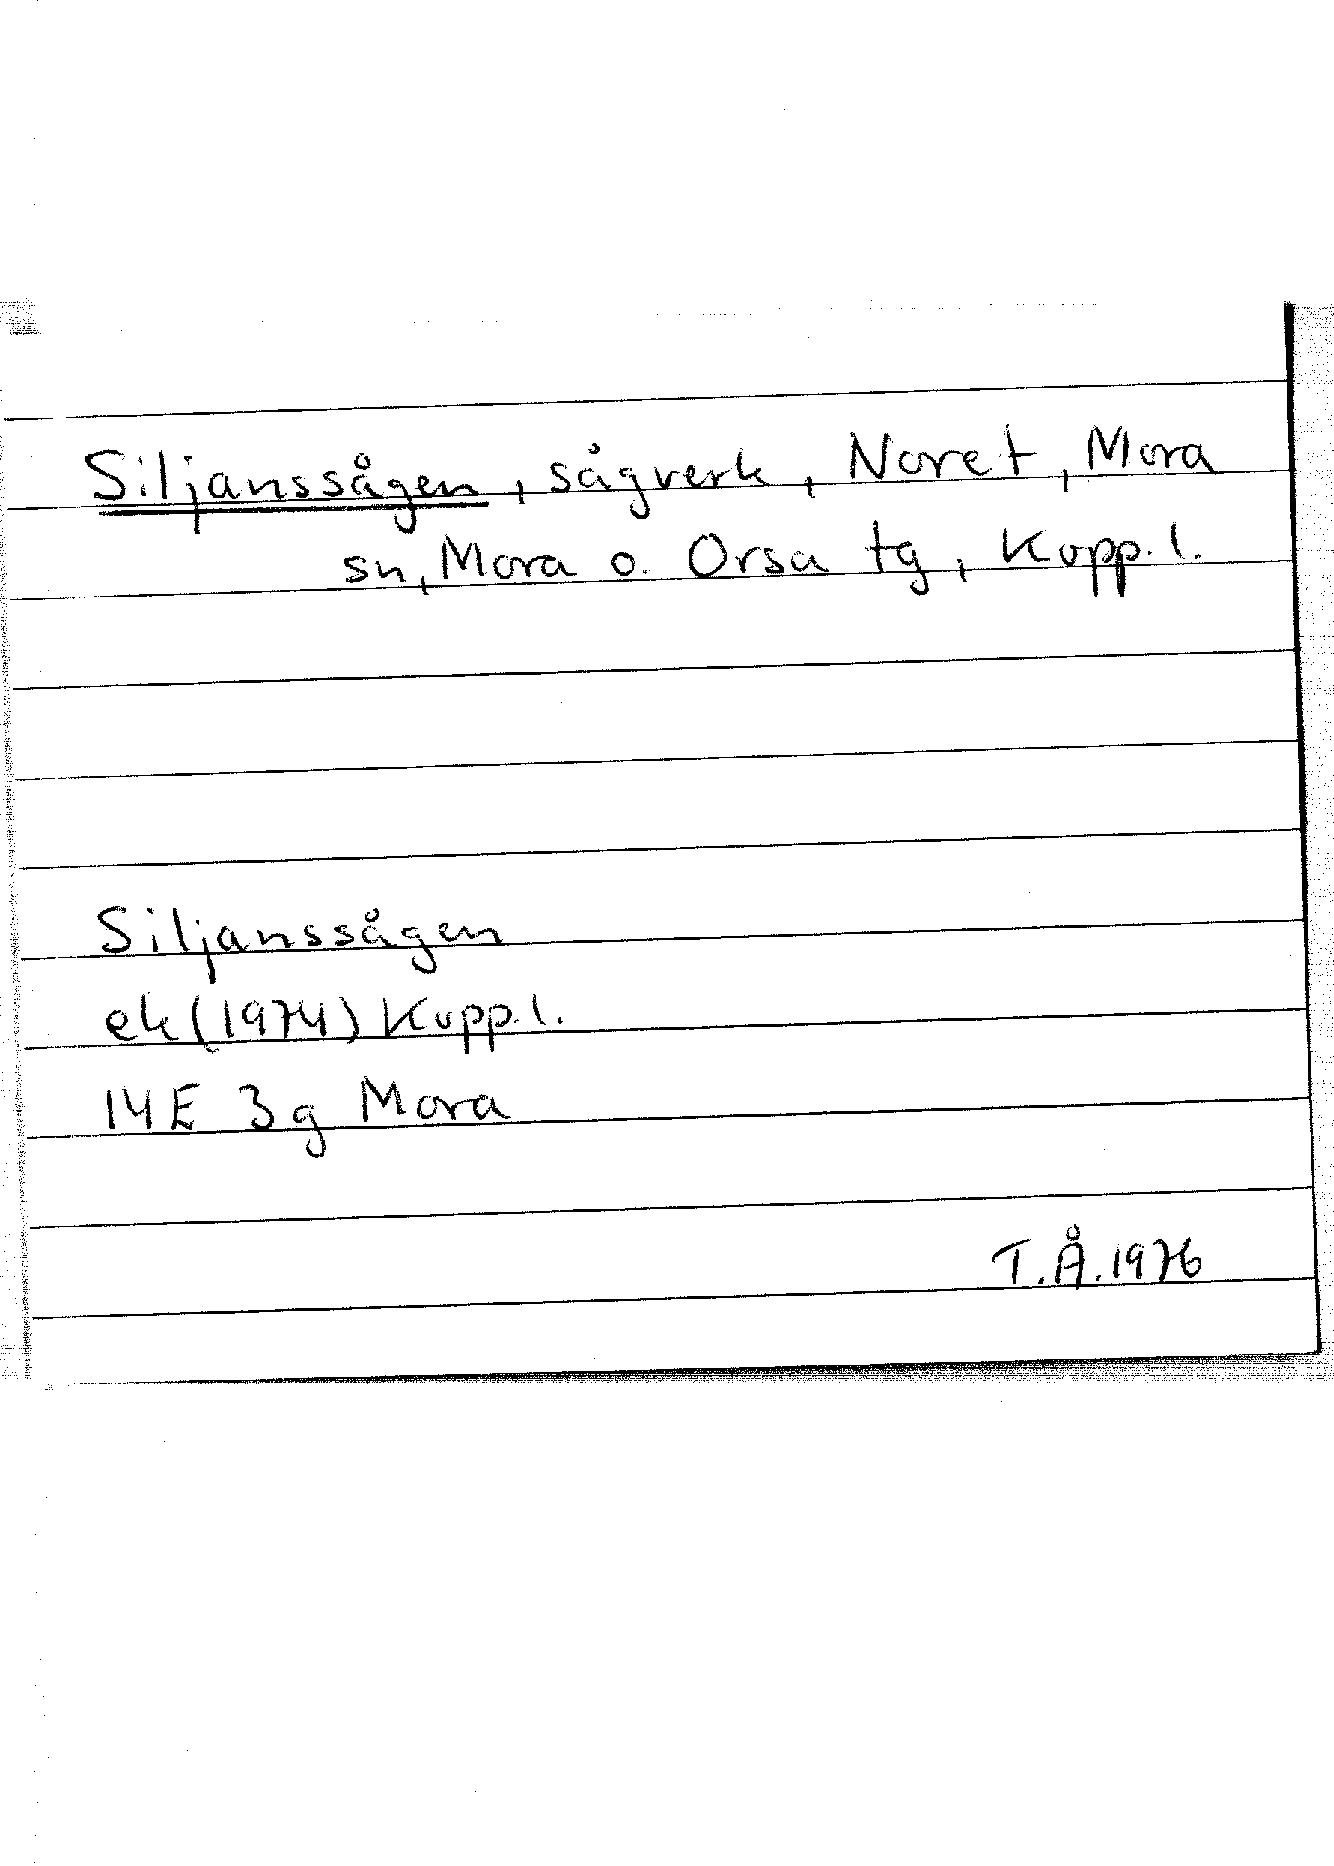 Siljanssågen, sågverk, Noret, Mora
sn, Mora o. Orsa tg, Kopp. l.
Siljanssågen
ek (1974) Kopp. l.
14E 3g Mora
T.Å. 1976